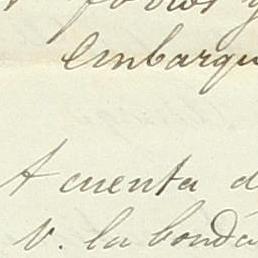 embarqu
A cuenta d
V. la bonda